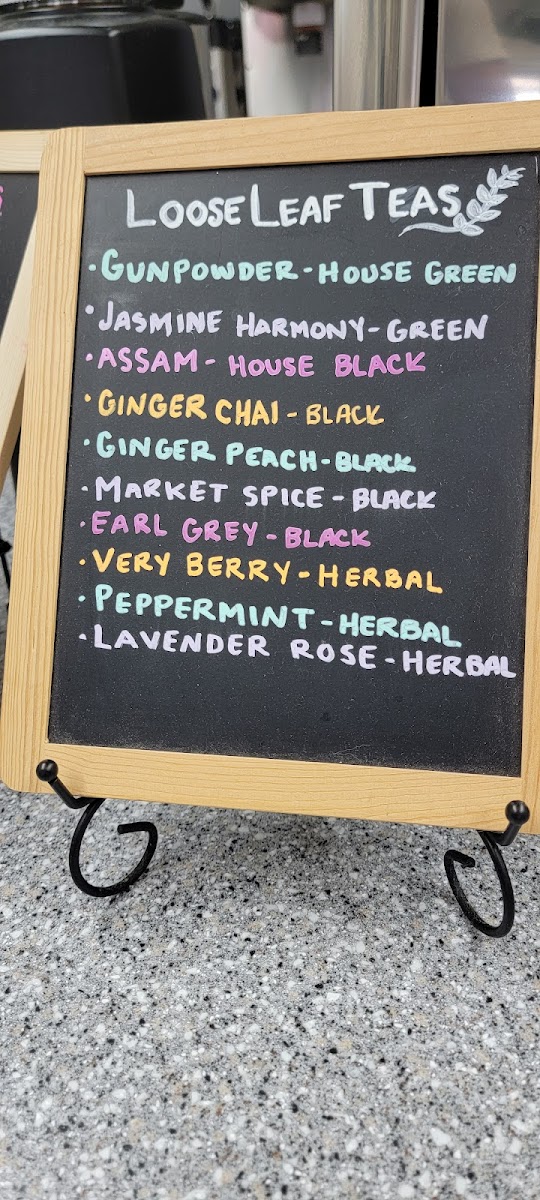 LOOSE LEAF TEAS
• GUNPOWDER - HOUSE GREEN
• JASMINE HARMONY - GREEN
• ASSAM - HOUSE BLACK
• GINGER CHAI - BLACK
• GINGER PEACH - BLACK
• MARKET SPICE - BLACK
• EARL GREY - BLACK
• VERY BERRY - HERBAL
• PEPPERMINT - HERBAL
• LAVENDER ROSE - HERBAL